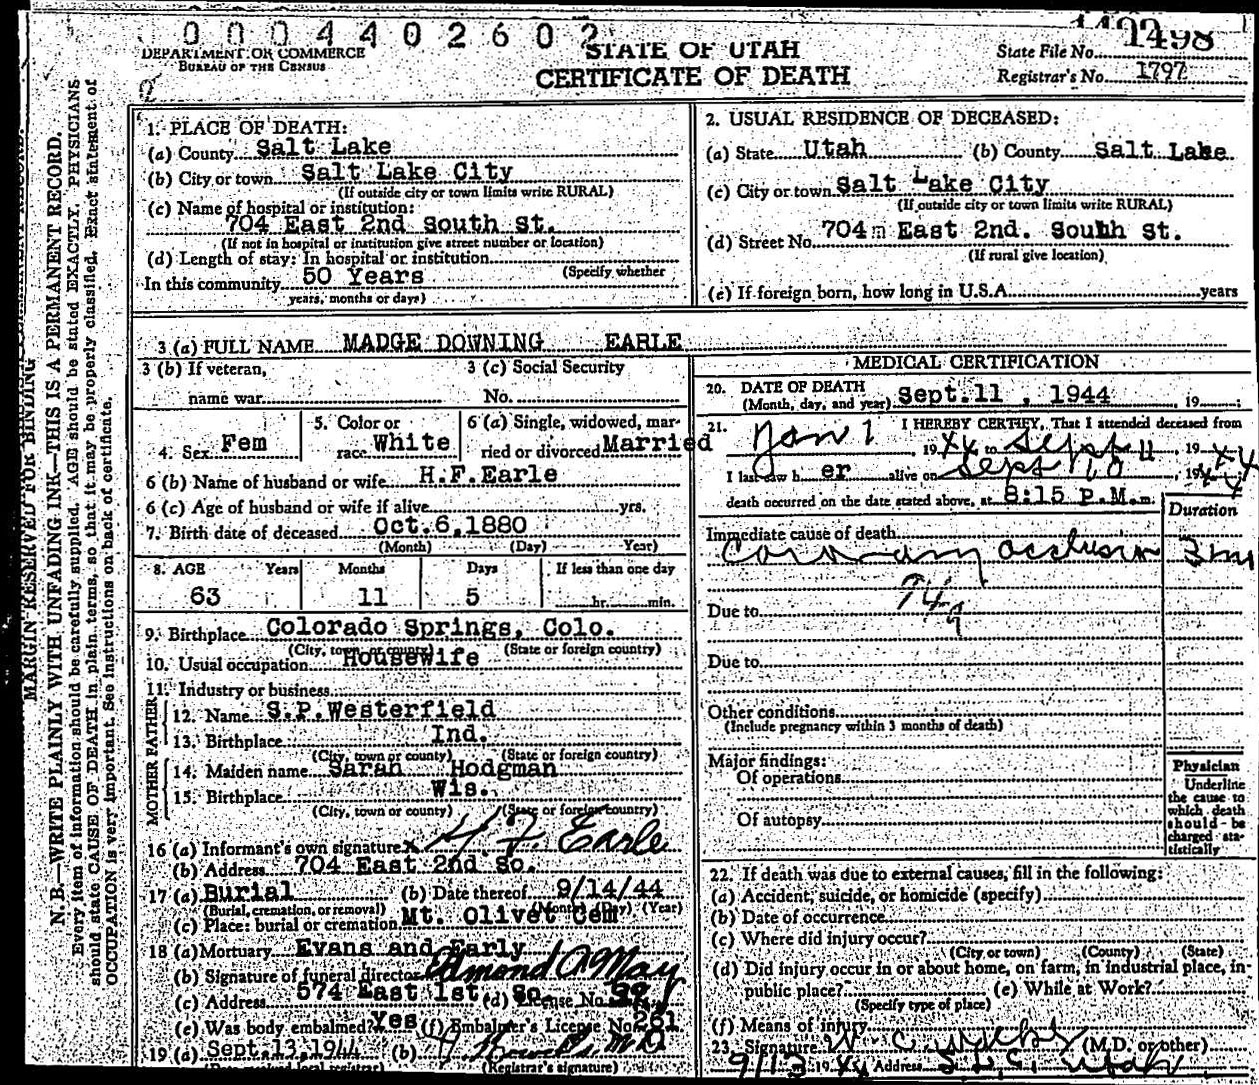 0004402602
1498
DEPARTMENT OF COMMERCE
BUREAU OF THE CENSUS
STATE OF UTAH
CERTIFICATE OF DEATH
State File No. 1498
Registrar's No. 1797
MARGIN RESERVED FOR BINDING
N. B.—WRITE PLAINLY WITH UNFADING INK—THIS IS A PERMANENT RECORD.
Every item of information should be carefully supplied. AGE should be stated EXACTLY. PHYSICIANS
should state CAUSE OF DEATH in plain terms, so that it may be properly classified. Exact statement of
OCCUPATION is very important. See instructions on back of certificate.
1. PLACE OF DEATH:
(a) County Salt Lake
(b) City or town Salt Lake City
(If outside city or town limits write RURAL)
(c) Name of hospital or institution:
704 East 2nd South St.
(If not in hospital or institution give street number or location)
(d) Length of stay: In hospital or institution
(Specify whether
In this community 50 Years
years, months or days)
2. USUAL RESIDENCE OF DECEASED:
(a) State Utah (b) County Salt Lake
(c) City or town Salt Lake City
(If outside city or town limits write RURAL)
(d) Street No. 704 East 2nd. South St.
(If rural give location)
(e) If foreign born, how long in U.S.A. years
3 (a) FULL NAME MADGE DOWNING EARLE
3 (b) If veteran, name war
3 (c) Social Security No.
4. Sex Fem
5. Color or race White
6 (a) Single, widowed, married or divorced Married
6 (b) Name of husband or wife H.F.Earle
6 (c) Age of husband or wife if alive yrs.
7. Birth date of deceased Oct.6,1880
(Month) (Day) Year)
8. AGE Years Months Days If less than one day
63 11 5 hr. min.
9. Birthplace Colorado Springs, Colo.
(City, town or county) (State or foreign country)
10. Usual occupation Housewife
11. Industry or business
FATHER
12. Name S.P.Westerfield
13. Birthplace Ind.
(City, town or county) (State or foreign country)
MOTHER
14. Maiden name Sarah Hodgman
15. Birthplace Wis.
(City, town or county) (State or foreign country)
16 (a) Informant's own signature x H. F. Earle
(b) Address 704 East 2nd So.
17 (a) Burial (b) Date thereof 9/14/44
(Burial, cremation, or removal) (Month) (Day) (Year)
(c) Place: burial or cremation Mt. Olivet Cem
18 (a) Mortuary Evans and Early
(b) Signature of funeral director Edmond A May
(c) Address 574 East 1st So. (d) License No.
(e) Was body embalmed? Yes (f) Embalmer's License No. 261
19 (a) Sept.13,1944 (b) M.D
(Registrar's signature)
MEDICAL CERTIFICATION
20. DATE OF DEATH
(Month, day, and year) Sept.11, 1944, 19
21. I HEREBY CERTIFY, That I attended deceased from
Jan 1, 1944 to Sept 11, 1944
I last saw h er alive on Sept 10 1944
death occurred on the date stated above, at 8:15 P.M.m.
Duration
Immediate cause of death
Coronary occlusion
94a
Due to
Due to
Other conditions
(Include pregnancy within 3 months of death)
Major findings:
Of operations
Of autopsy
Physician
Underline
the cause to
which death
should be
charged sta-
tistically
22. If death was due to external causes, fill in the following:
(a) Accident, suicide, or homicide (specify)
(b) Date of occurrence
(c) Where did injury occur?
(City or town) (County) (State)
(d) Did injury occur in or about home, on farm, in industrial place, in
public place? (e) While at Work?
(Specify type of place)
(f) Means of injury
23. Signature (M.D. or other)
9/13 1944 Address S.L.C. Utah